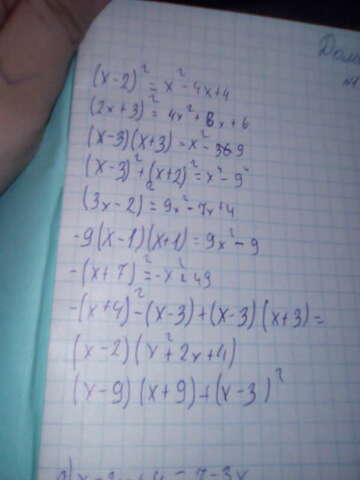 Дом
(x-2)² = x² - 4x + 4
(2x+3)² = 4x² + 6x + 6
(x-3)(x+3) = x² - 9
(x-3)² + (x+2)² = x² - 9
(3x-2)² = 9x² - 7x + 4
-9(x-1)(x+1) = 9x² - 9
-(x+7)² = -x² + 49
-(x+4)² - (x-3) + (x-3)(x+3) =
(x-2)(x² + 2x + 4)
(x-9)(x+9) + (x-3)²